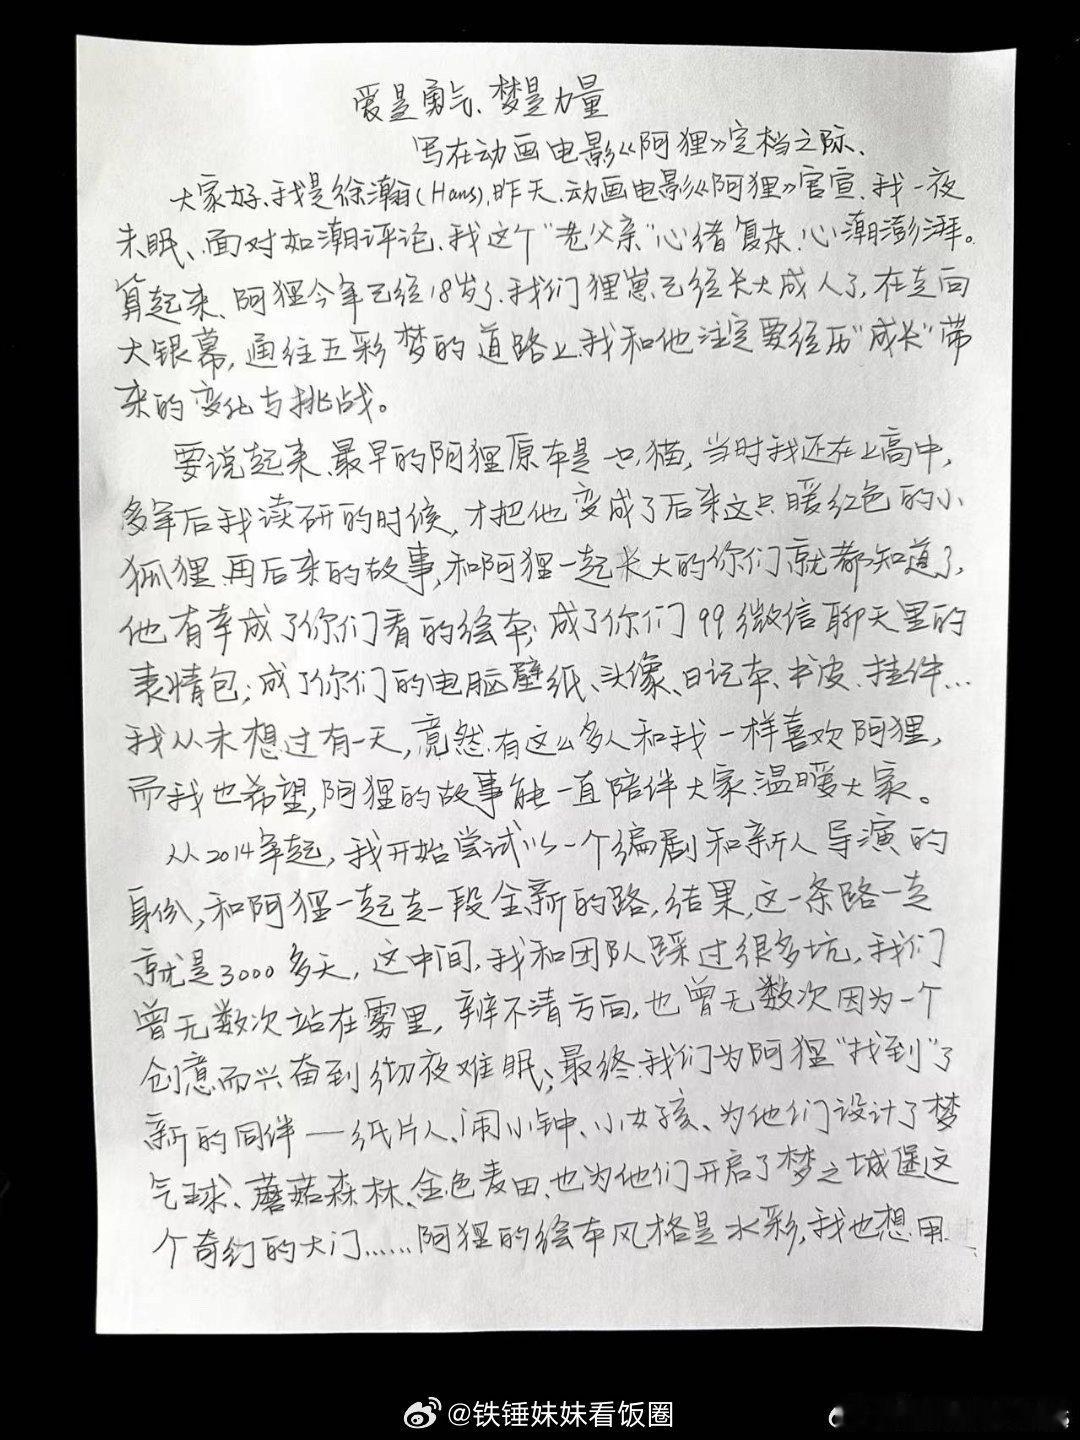 爱是勇气、梦是力量
写在动画电影《阿狸》定档之际、
大家好、我是徐瀚(Hans),昨天、动画电影《阿狸》官宣、我一夜
未眠、面对如潮评论、我这个“老父亲”心绪复杂、心潮澎湃。
算起来、阿狸今年已经18岁了、我们狸崽已经长大成人了,在走向
大银幕,通往五彩梦的道路上、我和他注定要经历“成长”带
来的变化与挑战。
要说起来、最早的阿狸原本是一只猫,当时我还在上高中,
多年后我读研的时候,才把他变成了后来这只暖红色的小
狐狸、再后来的故事,和阿狸一起长大的你们就都知道了,
他有幸成了你们看的绘本;成了你们99微信聊天里的
表情包;成了你们的电脑壁纸、头像、日记本、书皮、挂件…
我从未想过有一天,竟然有这么多人和我一样喜欢阿狸,
而我也希望,阿狸的故事能一直陪伴大家、温暖大家。
从2014年起,我开始尝试以一个编剧和新人导演的
身份,和阿狸一起走一段全新的路,结果,这一条路一走
就是3000多天,这中间,我和团队踩过很多坑,我们
曾无数次站在雾里,辨不清方向,也曾无数次因为一个
创意而兴奋到彻夜难眠;最终、我们为阿狸“找到”了
新的同伴——纸片人、闹小钟、小女孩、为他们设计了梦
气球、蘑菇森林、金色麦田、也为他们开启了梦之城堡这
个奇幻的大门……阿狸的绘本风格是水彩,我也想用
@铁锤妹妹看饭圈